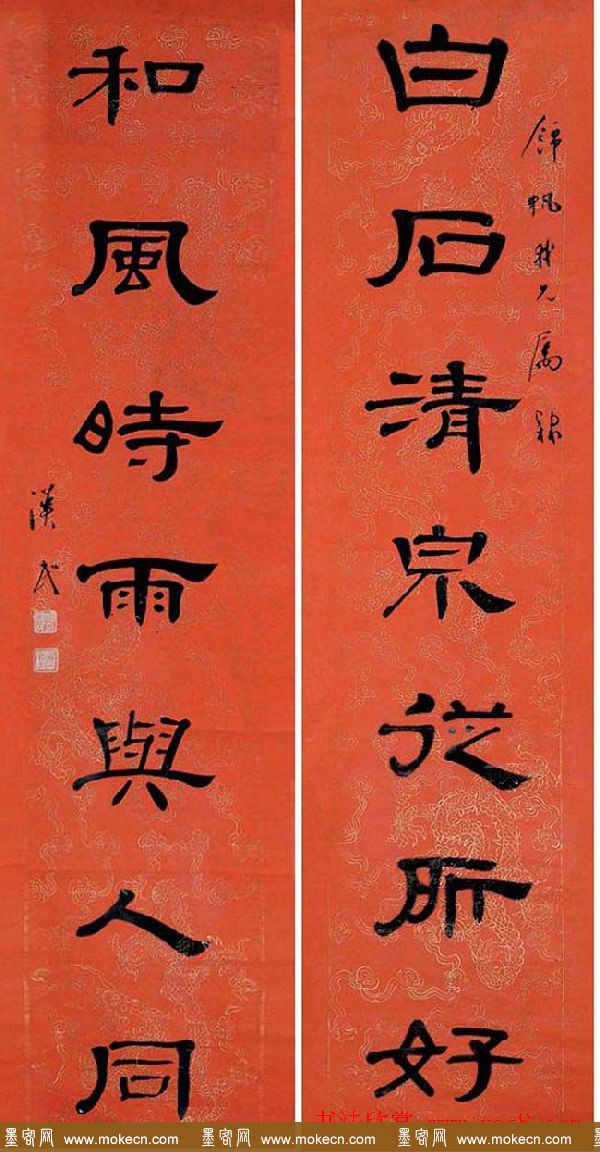 錦帆我兄属隸
白石清泉從所好
和風時雨與人同
漢民
书法欣赏 www.yac8.com
墨客网 www.mokecn.com 墨客网 www.mokecn.com 墨客网 www.mokecn.com